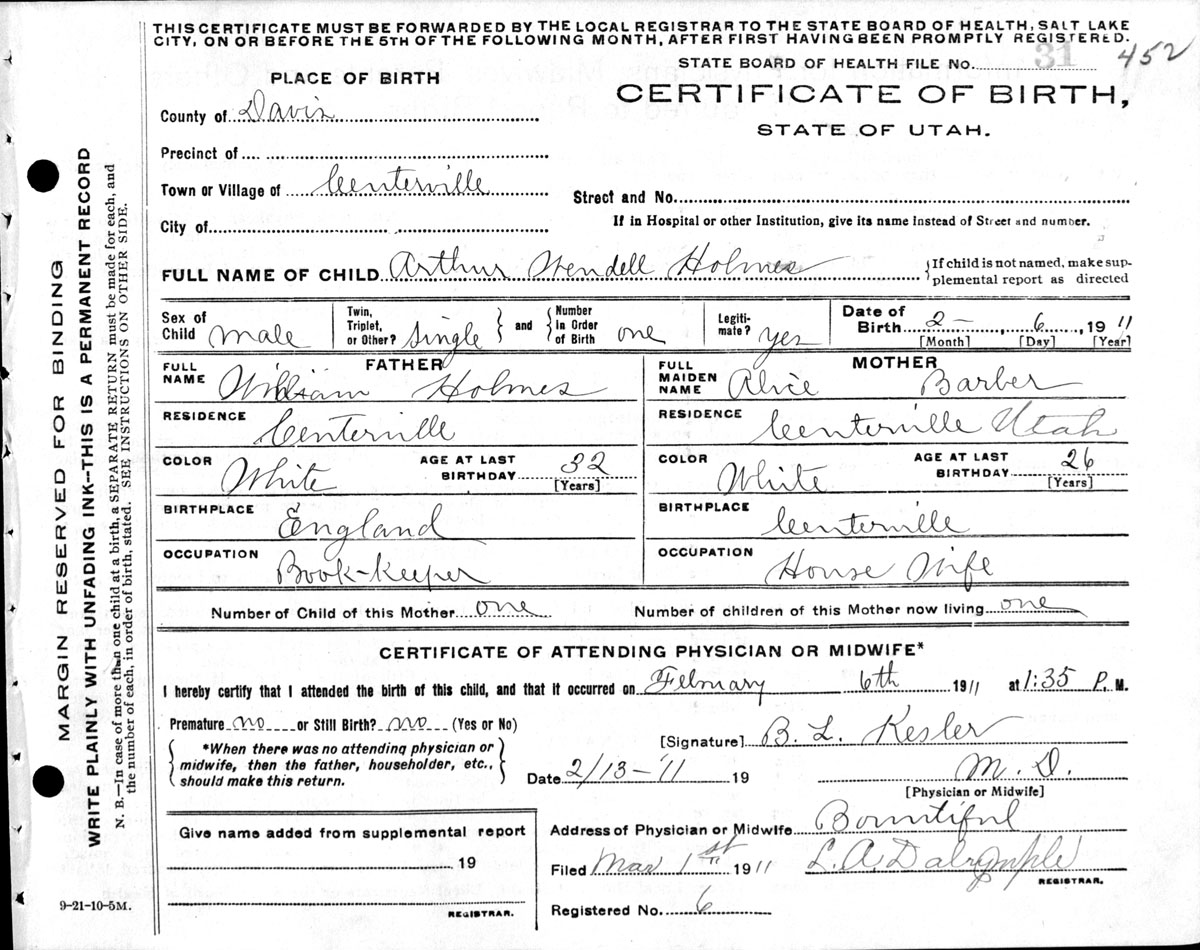 THIS CERTIFICATE MUST BE FORWARDED BY THE LOCAL REGISTRAR TO THE STATE BOARD OF HEALTH, SALT LAKE
CITY, ON OR BEFORE THE 5TH OF THE FOLLOWING MONTH, AFTER FIRST HAVING BEEN PROMPTLY REGISTERED.
STATE BOARD OF HEALTH FILE No. 31 452
PLACE OF BIRTH
CERTIFICATE OF BIRTH,
STATE OF UTAH.
County of Davis
Precinct of
Town or Village of Centerville
Street and No.
City of
If in Hospital or other Institution, give its name instead of Street and number.
FULL NAME OF CHILD Arthur Wendell Holmes
If child is not named, make sup-
plemental report as directed
Sex of Child Male
Twin, Triplet, or Other? Single and Number in Order of Birth one
Legiti-mate? yes
Date of Birth 2 - , 6 , 1911
[Month] [Day] [Year]
FATHER
FULL NAME William Holmes
RESIDENCE Centerville
COLOR White AGE AT LAST BIRTHDAY 32 [Years]
BIRTHPLACE England
OCCUPATION Book-keeper
MOTHER
FULL MAIDEN NAME Alice Barber
RESIDENCE Centerville Utah
COLOR White AGE AT LAST BIRTHDAY 26 [Years]
BIRTHPLACE Centerville
OCCUPATION House Wife
Number of Child of this Mother one Number of children of this Mother now living one
CERTIFICATE OF ATTENDING PHYSICIAN OR MIDWIFE*
I hereby certify that I attended the birth of this child, and that it occurred on February 6th 1911 at 1:35 P. M.
Premature no or Still Birth? no (Yes or No)
*When there was no attending physician or
midwife, then the father, householder, etc.,
should make this return.
[Signature] B. L. Kesler
Date 2/13-'11 19 M. D.
[Physician or Midwife]
Give name added from supplemental report
19
REGISTRAR.
Address of Physician or Midwife Bountiful
Filed Mar 1st " 1911 L. A. Dalrymple
REGISTRAR.
Registered No. 6
9-21-10-5M.
MARGIN RESERVED FOR BINDING
WRITE PLAINLY WITH UNFADING INK--THIS IS A PERMANENT RECORD
N. B.—In case of more than one child at a birth, a SEPARATE RETURN must be made for each, and
the number of each, in order of birth, stated. SEE INSTRUCTIONS ON OTHER SIDE.